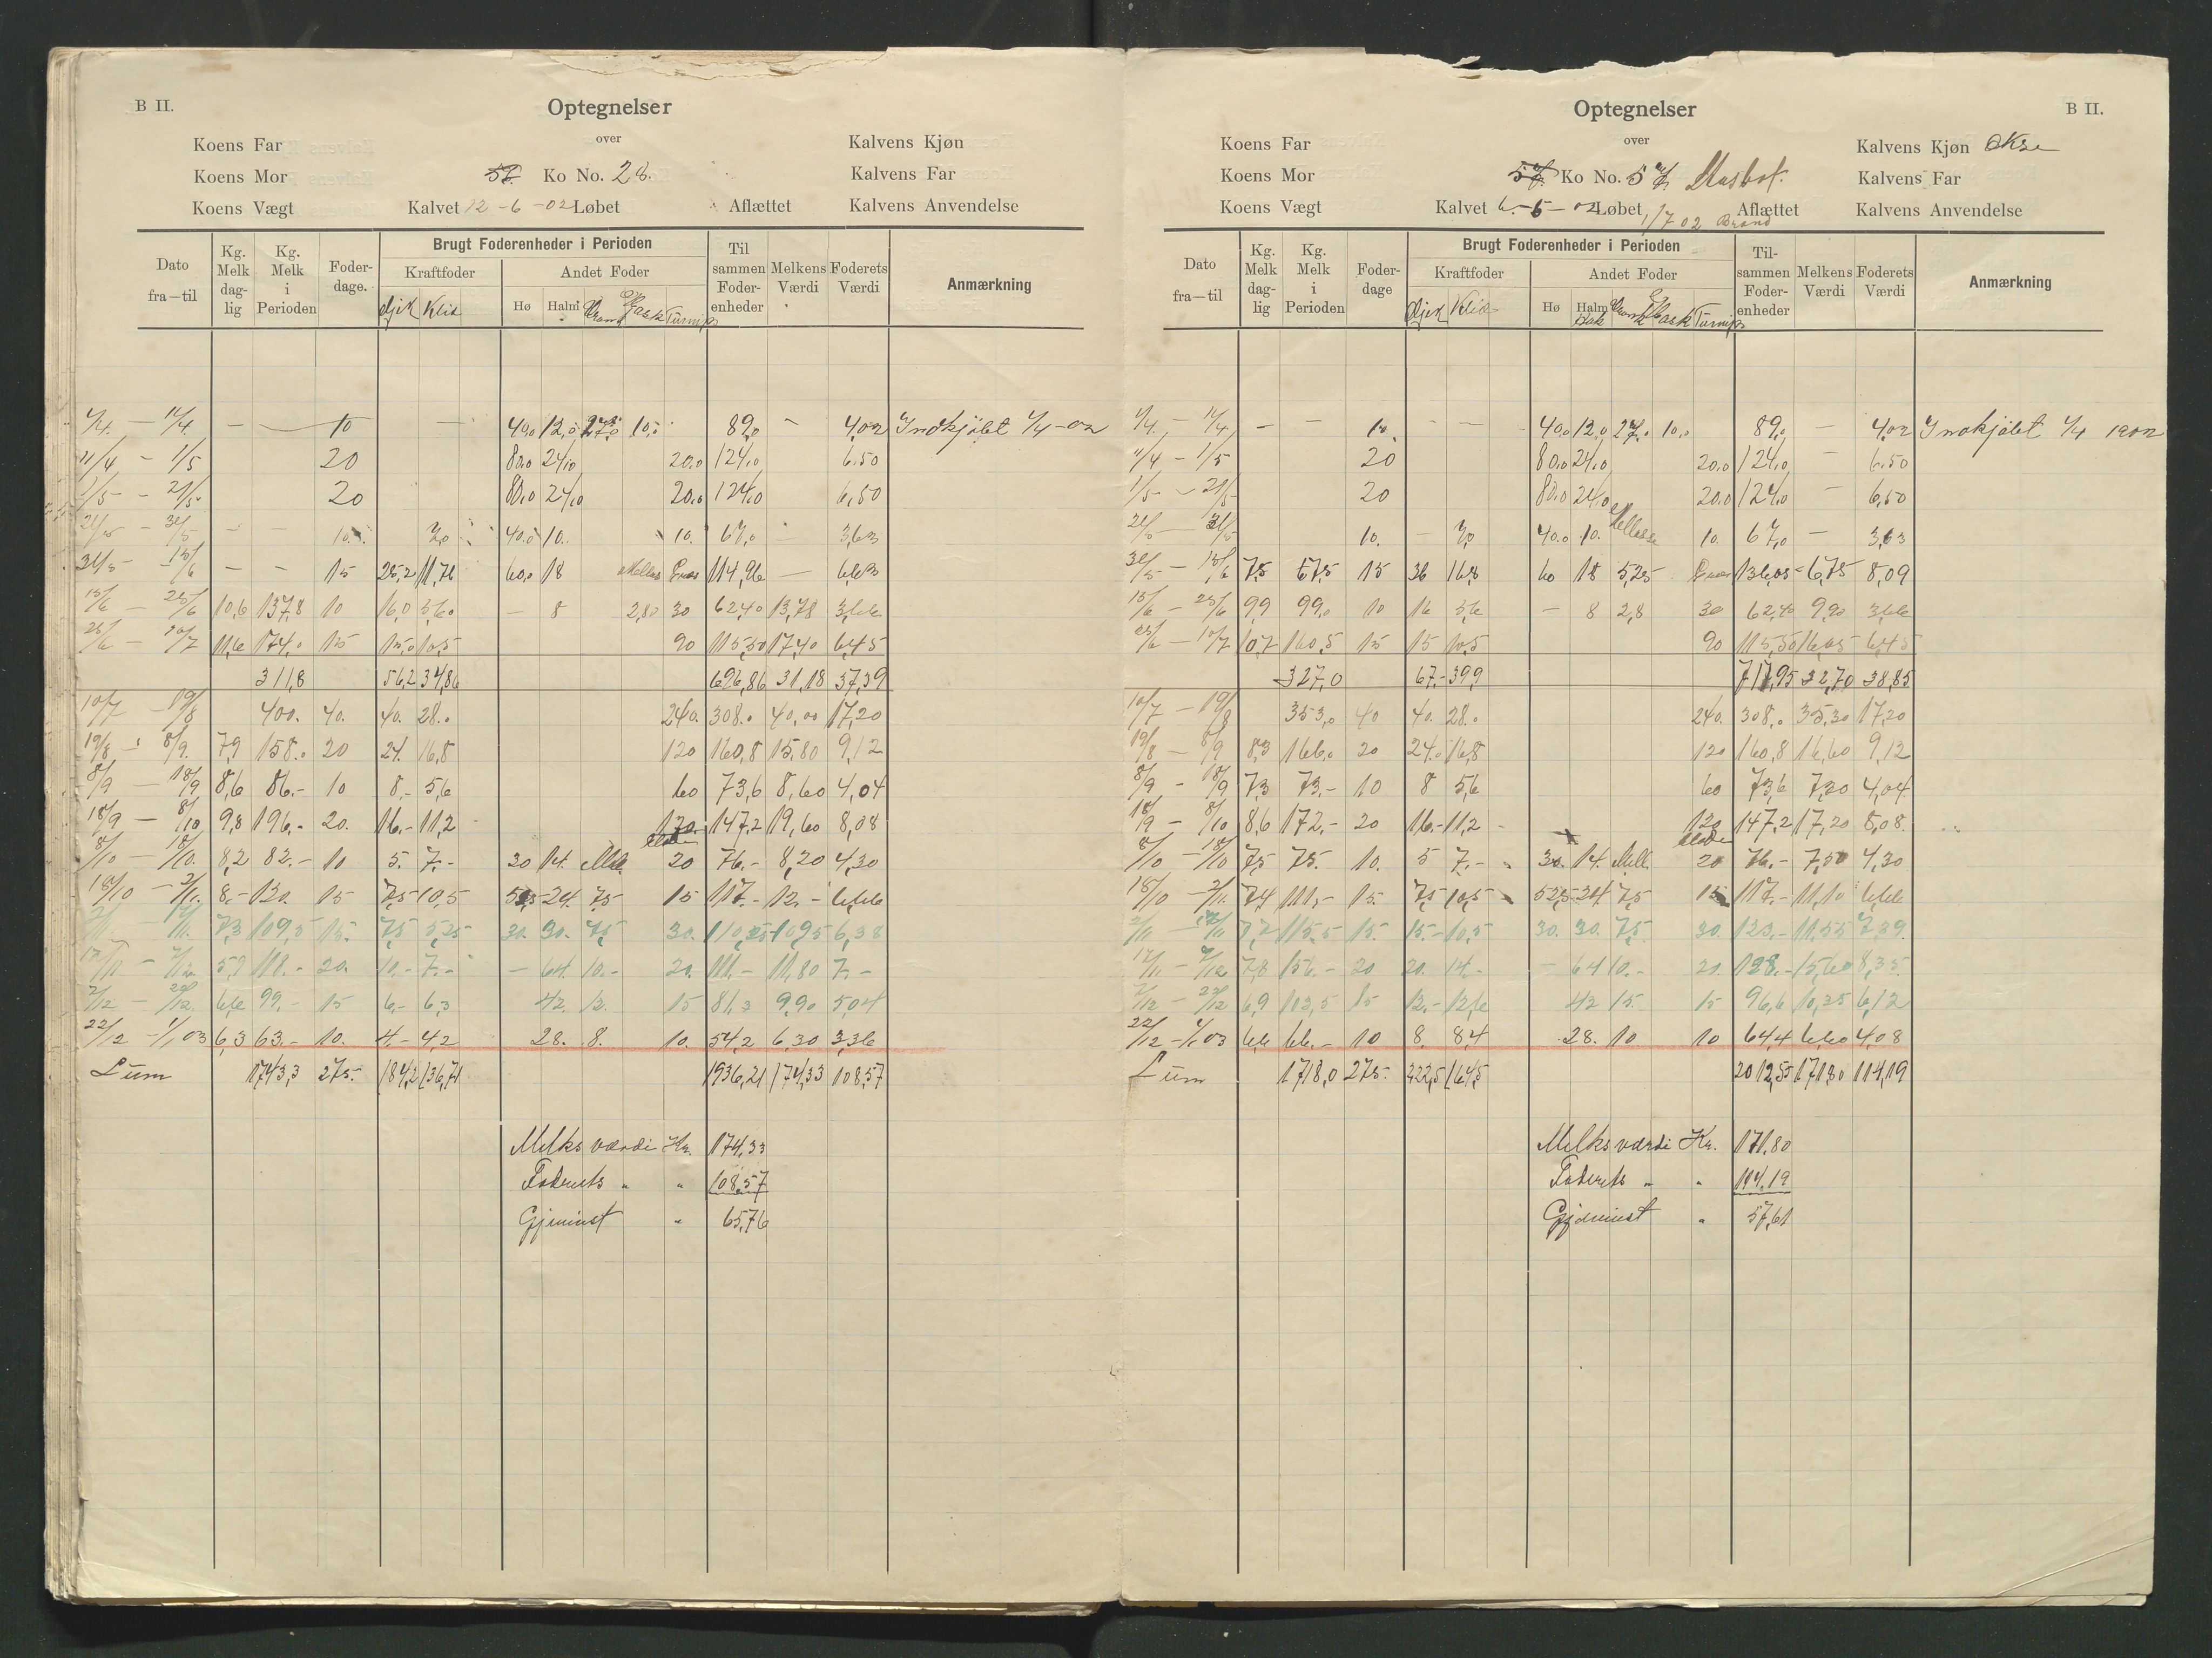 B II.
Optegnelser
over
Koens Far
Kalvens Kjøn
Koens Mor
Ko No. 28.
Kalvens Far
Koens Vægt
Kalvet 12-6-02 Løbet
Aflættet
Kalvens Anvendelse
Dato
fra—til
Kg. Melk dag-lig
Kg. Melk i Perioden
Foder-dage.
Brugt Foderenheder i Perioden
Kraftfoder
Andet Foder
Hø Halm Mask Turnips
Til sammen Foder-enheder
Melkens Værdi
Foderets Værdi
Anmærkning
1/4. — 11/4. — — 10 — 40,0 12,0 27,0 10,0 89,0 — 4,02 Indkjöbt 1/4-02
11/4 — 1/5 20 80,0 24,0 20,0 124,0 6.50
1/5 — 21/5 20 80,0 24,0 20,0 124,0 6,50
21/5 — 31/5 — — 10. 7,0 40.0 10. 10. 67,0 — 3,63
31/5 — 15/6 — — 15 25,2 11,76 60,0 18 114,96 — 6,63
15/6 — 25/6 10,6 137,8 10 16,0 5,60 — 8 2,80 30 62,40 13,78 3,66
25/6 — 10/7 11,6 174,0 15 15,0 10,5 90 115,50 17,40 6,45
311,8 56,2 34,86 696,86 31,18 37,39
10/7 — 19/8 400. 40. 40. 28.0 240. 308.0 40,00 17,20
19/8 — 8/9. 7,9 158.0 20 24. 16,8 120 160,8 15,80 9,12
8/9 — 18/9 8,6 86.- 10 8.- 5,6 60 73,6 8,60 4,04
18/9 — 8/10 9,8 196.- 20. 16.- 11,2 120. 147,2 19,60 8,08
8/10 — 18/10. 8,2 82.- 10 5. 7.- 20 14. 20 76.- 8,20 4,30
18/10 — 2/11. 8.- 120. 15 7,5 10,5 24. 7,5 15 117.- 12.- 6,66
2/11 17/11. 7,3 109,5 15. 7,5 5,25 30. 30. 7,5 30. 110,25 10,95 6,38
17/11 — 7/12 5,9 118.- 20. 10.- 7.- — 64. 10.- 20. 111.- 11,80 7.-
7/12 — 22/12. 6,6 99.- 15 6.- 6,3 42. 12. 15 81,3 9,90 5,04
22/12 — 1/1 03 6,3 63.- 10. 4.- 4,2 28. 8. 10. 54,2 6,30 3,36
Sum 1743,3 275. 184,2 136,71 1936,21 174,33 108,57
Melks værdi Kr. 174,33
Foderets " " 108,57
Gjevinst " 65,76
B II.
Optegnelser
over
Koens Far
Kalvens Kjøn Okse
Koens Mor
Ko No. 57
Kalvens Far
Koens Vægt
Kalvet 6.-5-02 Løbet 1/7 02 Brand
Aflættet
Kalvens Anvendelse
Dato
fra—til
Kg. Melk dag-lig
Kg. Melk i Perioden
Foder-dage
Brugt Foderenheder i Perioden
Kraftfoder
Andet Foder
Hø Halm Mask Turnips
Til-sammen Foder-enheder
Melkens Værdi
Foderets Værdi
Anmærkning
1/4. — 11/4. — — 10. — — 40,0 12,0 27,0 10,0 89,0 — 4,02 Indkjöbt 1/4 1902
11/4 — 1/5 20 80,0 24,0 20,0 124,0 — 6.50
1/5 — 21/5 20 80,0 24,0 20,0 124,0 — 6,50
21/5 — 31/5 10. — 7,0 40.0 10. Mellasse 10. 67,0 — 3,63
31/5 — 15/6 7,5 67,5 15 36 16,8 60 18 5,25 136,05 6,75 8,09
15/6 — 25/6 9,9 99,0 10 16 5,6 — 8 2,8 30 62,40 9,90 3,66
25/6 — 10/7 10,7 160,5 15 15 10,5 90 115,50 16,05 6,45
327,0 67.- 39,9 717,95 32,70 38,85
10/7 — 19/8 353,0 40 40. 28.0 240. 308.0 35,30 17,20
19/8 — 8/9 8,3 166.0 20 24.0 16,8 120 160,8 16,60 9,12
8/9 — 18/9 7,3 73.- 10 8 5,6 60 73,6 7,30 4,04
18/9 — 8/10 8,6 172.- 20 16.- 11,2 120 147,2 17,20 8,08.
8/10 — 18/10 7,5 75. 10. 5 7.- 14. Mell. 20 76.- 7,50 4,30
18/10 — 2/11. 7,4 111.- 15. 7,5 10,5 52,5 24 7,5 15 117.- 11,10 6,66
2/11 — 17/11 7,7 115,5 15. 15.- 10,5 30. 30. 7,5 30. 123.- 11,55 7,39.
17/11 — 7/12 7,8 156.- 20 20. 14.- — 64 10.- 20. 128.- 15,60 8,35.
7/12 — 22/12 6,9 103,5 15 12.- 12,6 42 15. 15 96,6 10,35 6,12
22/12 — 1/1 03 6,6 66.- 10 8. 8,4 28. 10 10 64,4 6,60 4,08
Sum 1718,0 275. 222,5 164,5 2012,55 171,80 114,19
Melks værdi Kr. 171,80
Foderets " " 114,19
Gjevinst " 57,61